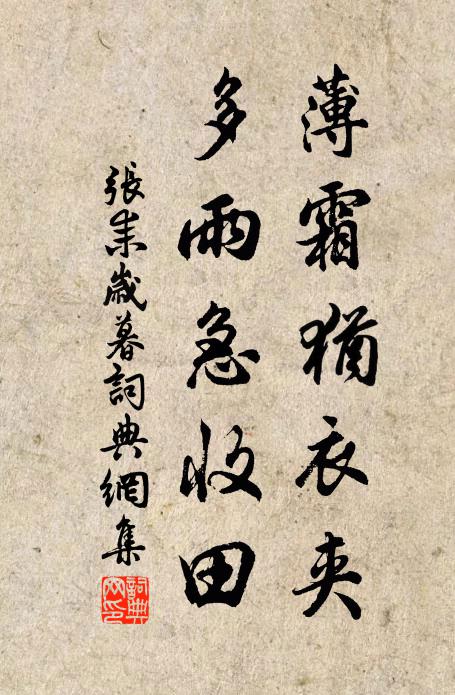 薄霜猶衣夾
多雨急收田
張耒歲暮詞典網集
詞典
网印